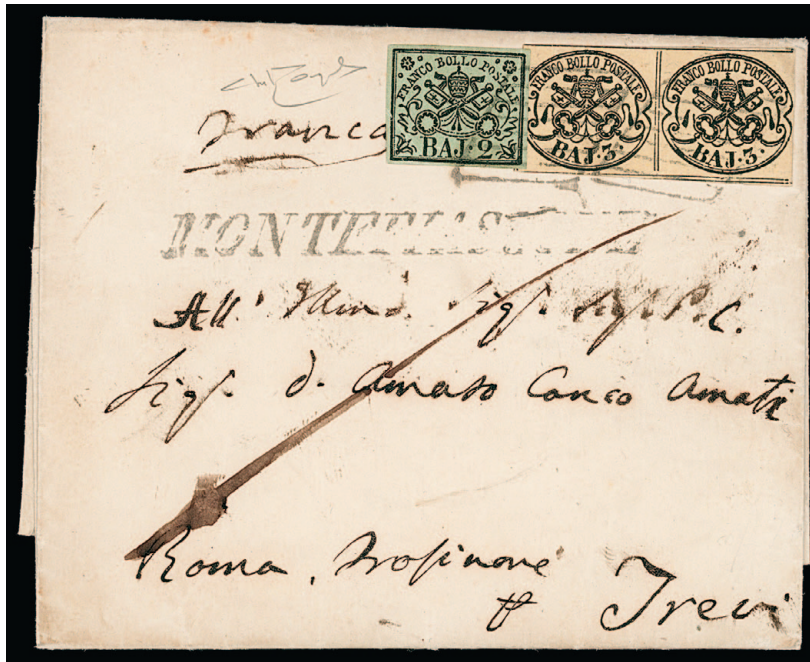 FRANCO BOLLO POSTALE
BAJ. 2
FRANCO BOLLO POSTALE
BAJ. 3.
FRANCO BOLLO POSTALE
BAJ. 3.
Franca
All' Illmo. Sigr. Sigr. P. C.
Sigr. D. Amaso Canco Amati
Roma, Frosinone
Trevi